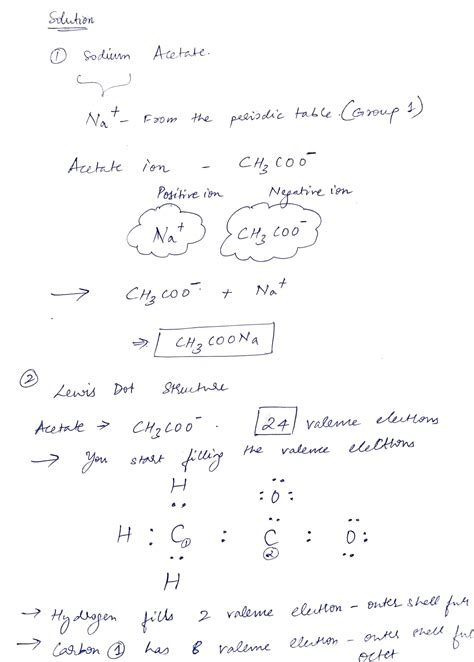 Solution
① Sodium Acetate.
Na⁺ – From the periodic table. (Group 1)
Acetate ion – CH₃COO⁻
Positive ion Negative ion
Na⁺ CH₃COO⁻
→ CH₃COO⁻ + Na⁺
⇒ CH₃COONa
② Lewis Dot Structure
Acetate → CH₃COO⁻. 24 valence electrons
→ You start filling the valence electrons
H
: O :
H : C ① : C ② : O :
H
→ Hydrogen fills 2 valence electron – outer shell full
→ Carbon ① has 8 valence electron – outer shell
octet